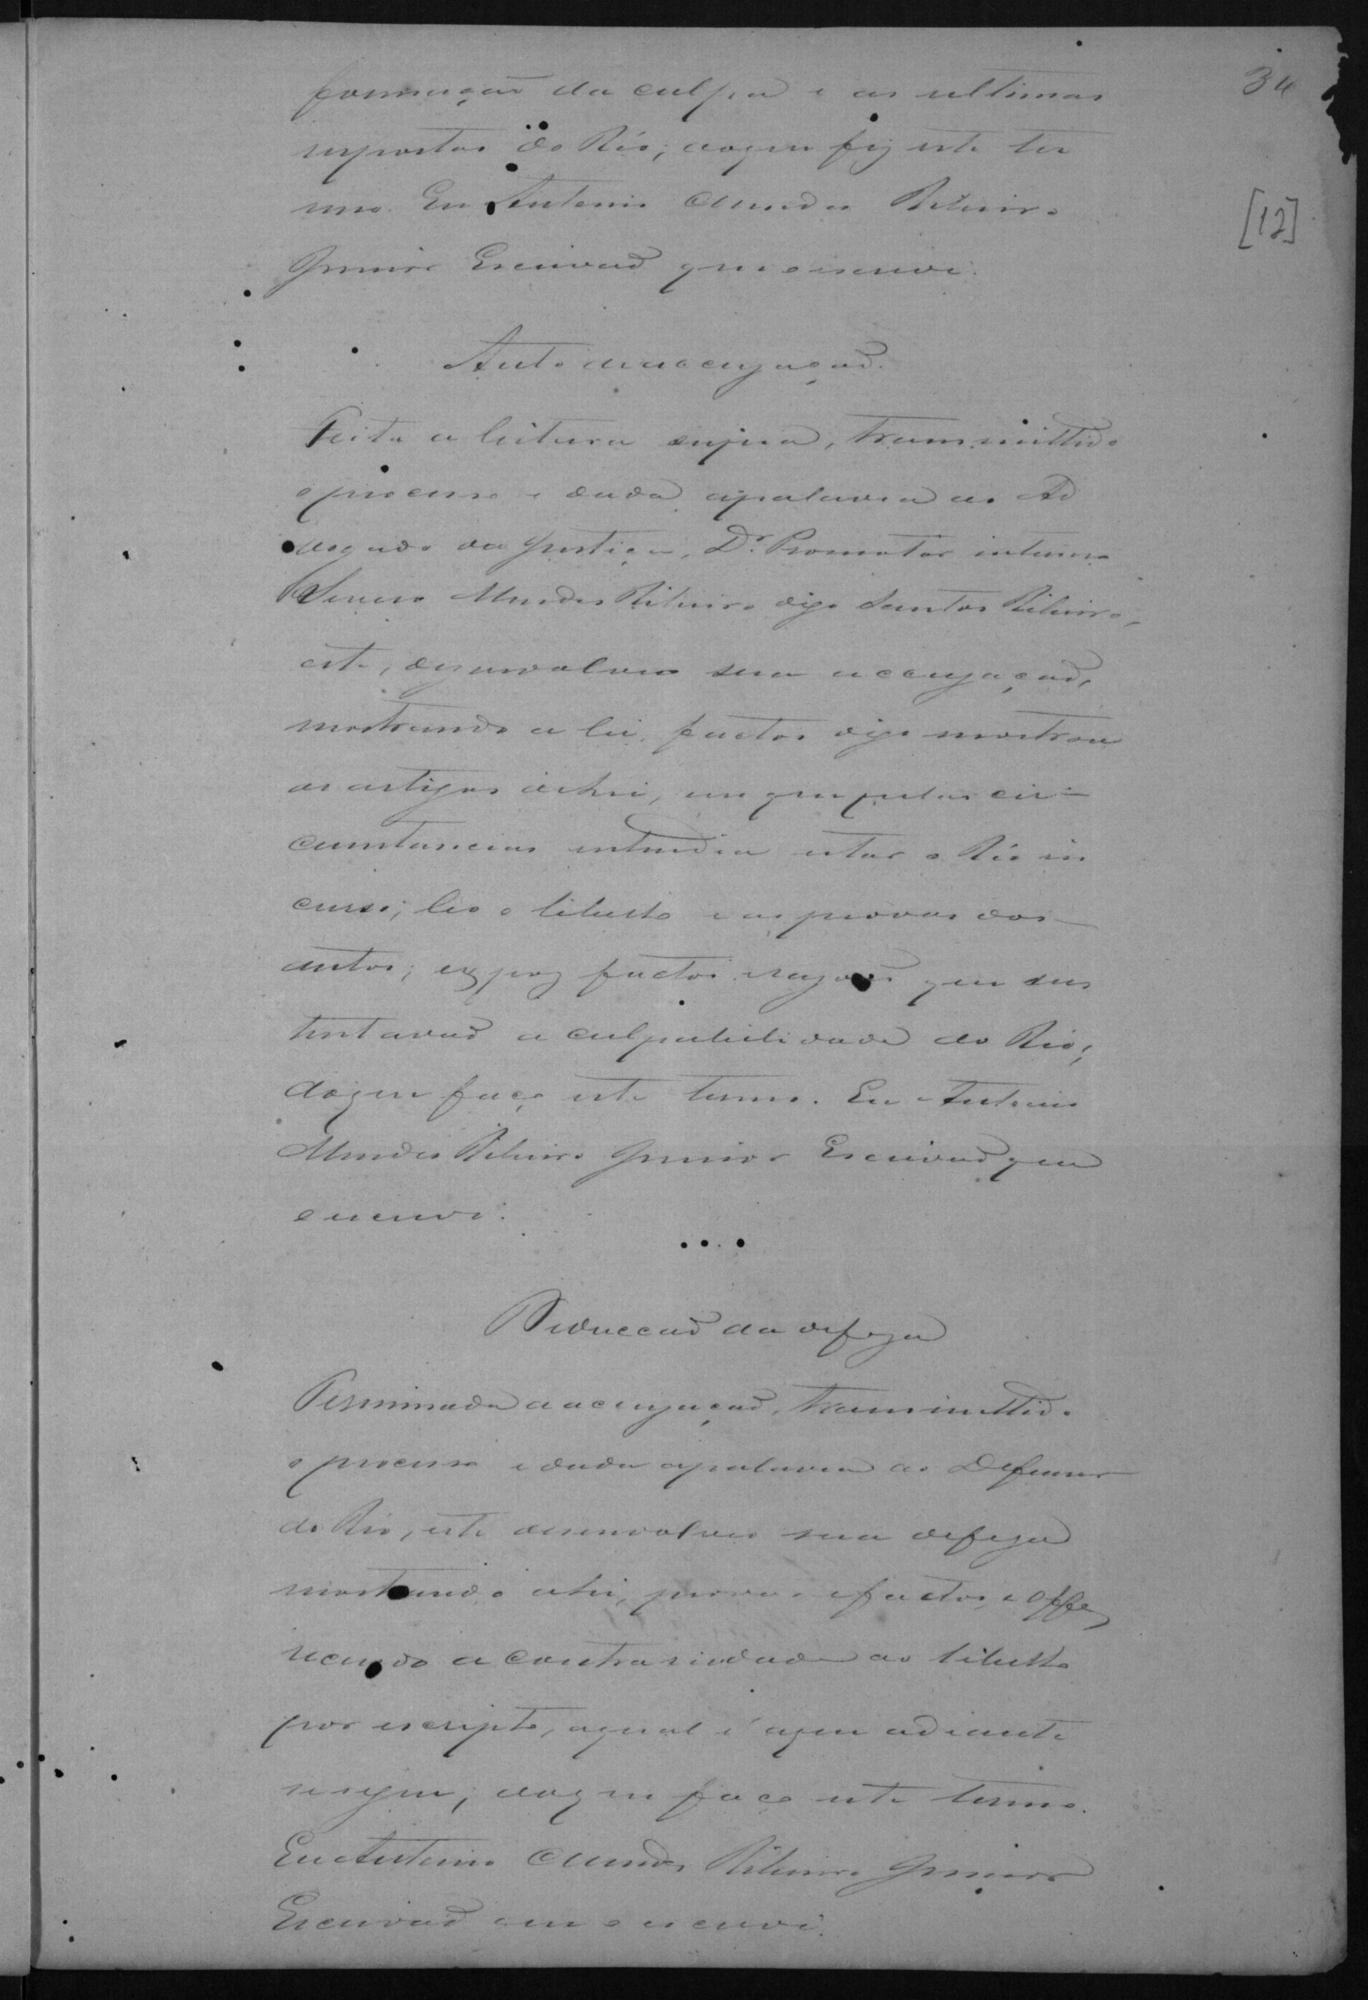 34
formação da culpa e as ultimas
[12]
respostas do Réo; do que fiz este ter
mo. Eu Antonio Mendes Ribeiro
Junior Escrivaõ que o escrevi.
Auto de accuzaçaõ.
Feita a leitura supra, transmittido
o processo e dada a palavra ao Ad
vogado da Justiça, Dr. Promotor interino
Mendes Ribeiro digo Santos Ribeiro,
este, desenvolveo sua accuzaçaõ,
mostrando a lei, factos digo mostrou
os artigos da lei, em que pelas cir
cunstancias entendia estar o Réo in
curso; leo o libello e as provas dos
autos; expoz factos e razoẽs que sus
tentavaõ a culpabilidade do Réo;
do que faço este termo. Eu Antonio
Mendes Ribeiro Junior Escrivaõ que
o escrevi.
Deducçaõ da defeza
Terminada a accuzaçaõ, transmittido
o processo e dada a palavra ao Defensor
do Réo, este desenvolveo sua defeza
mostrando a lei, provas e factos, e offe
recendo a contrariedade ao libello
por escripto, a qual é a que adiante
se segue; do que faço este termo.
Eu Antonio Mendes Ribeiro Junior
Escrivaõ que o escrevi.